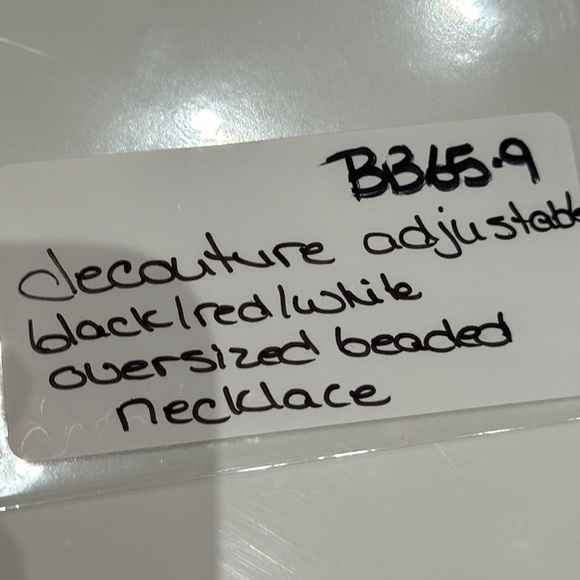 BB65.9
decouture adjustable
black/red/white
oversized beaded
necklace